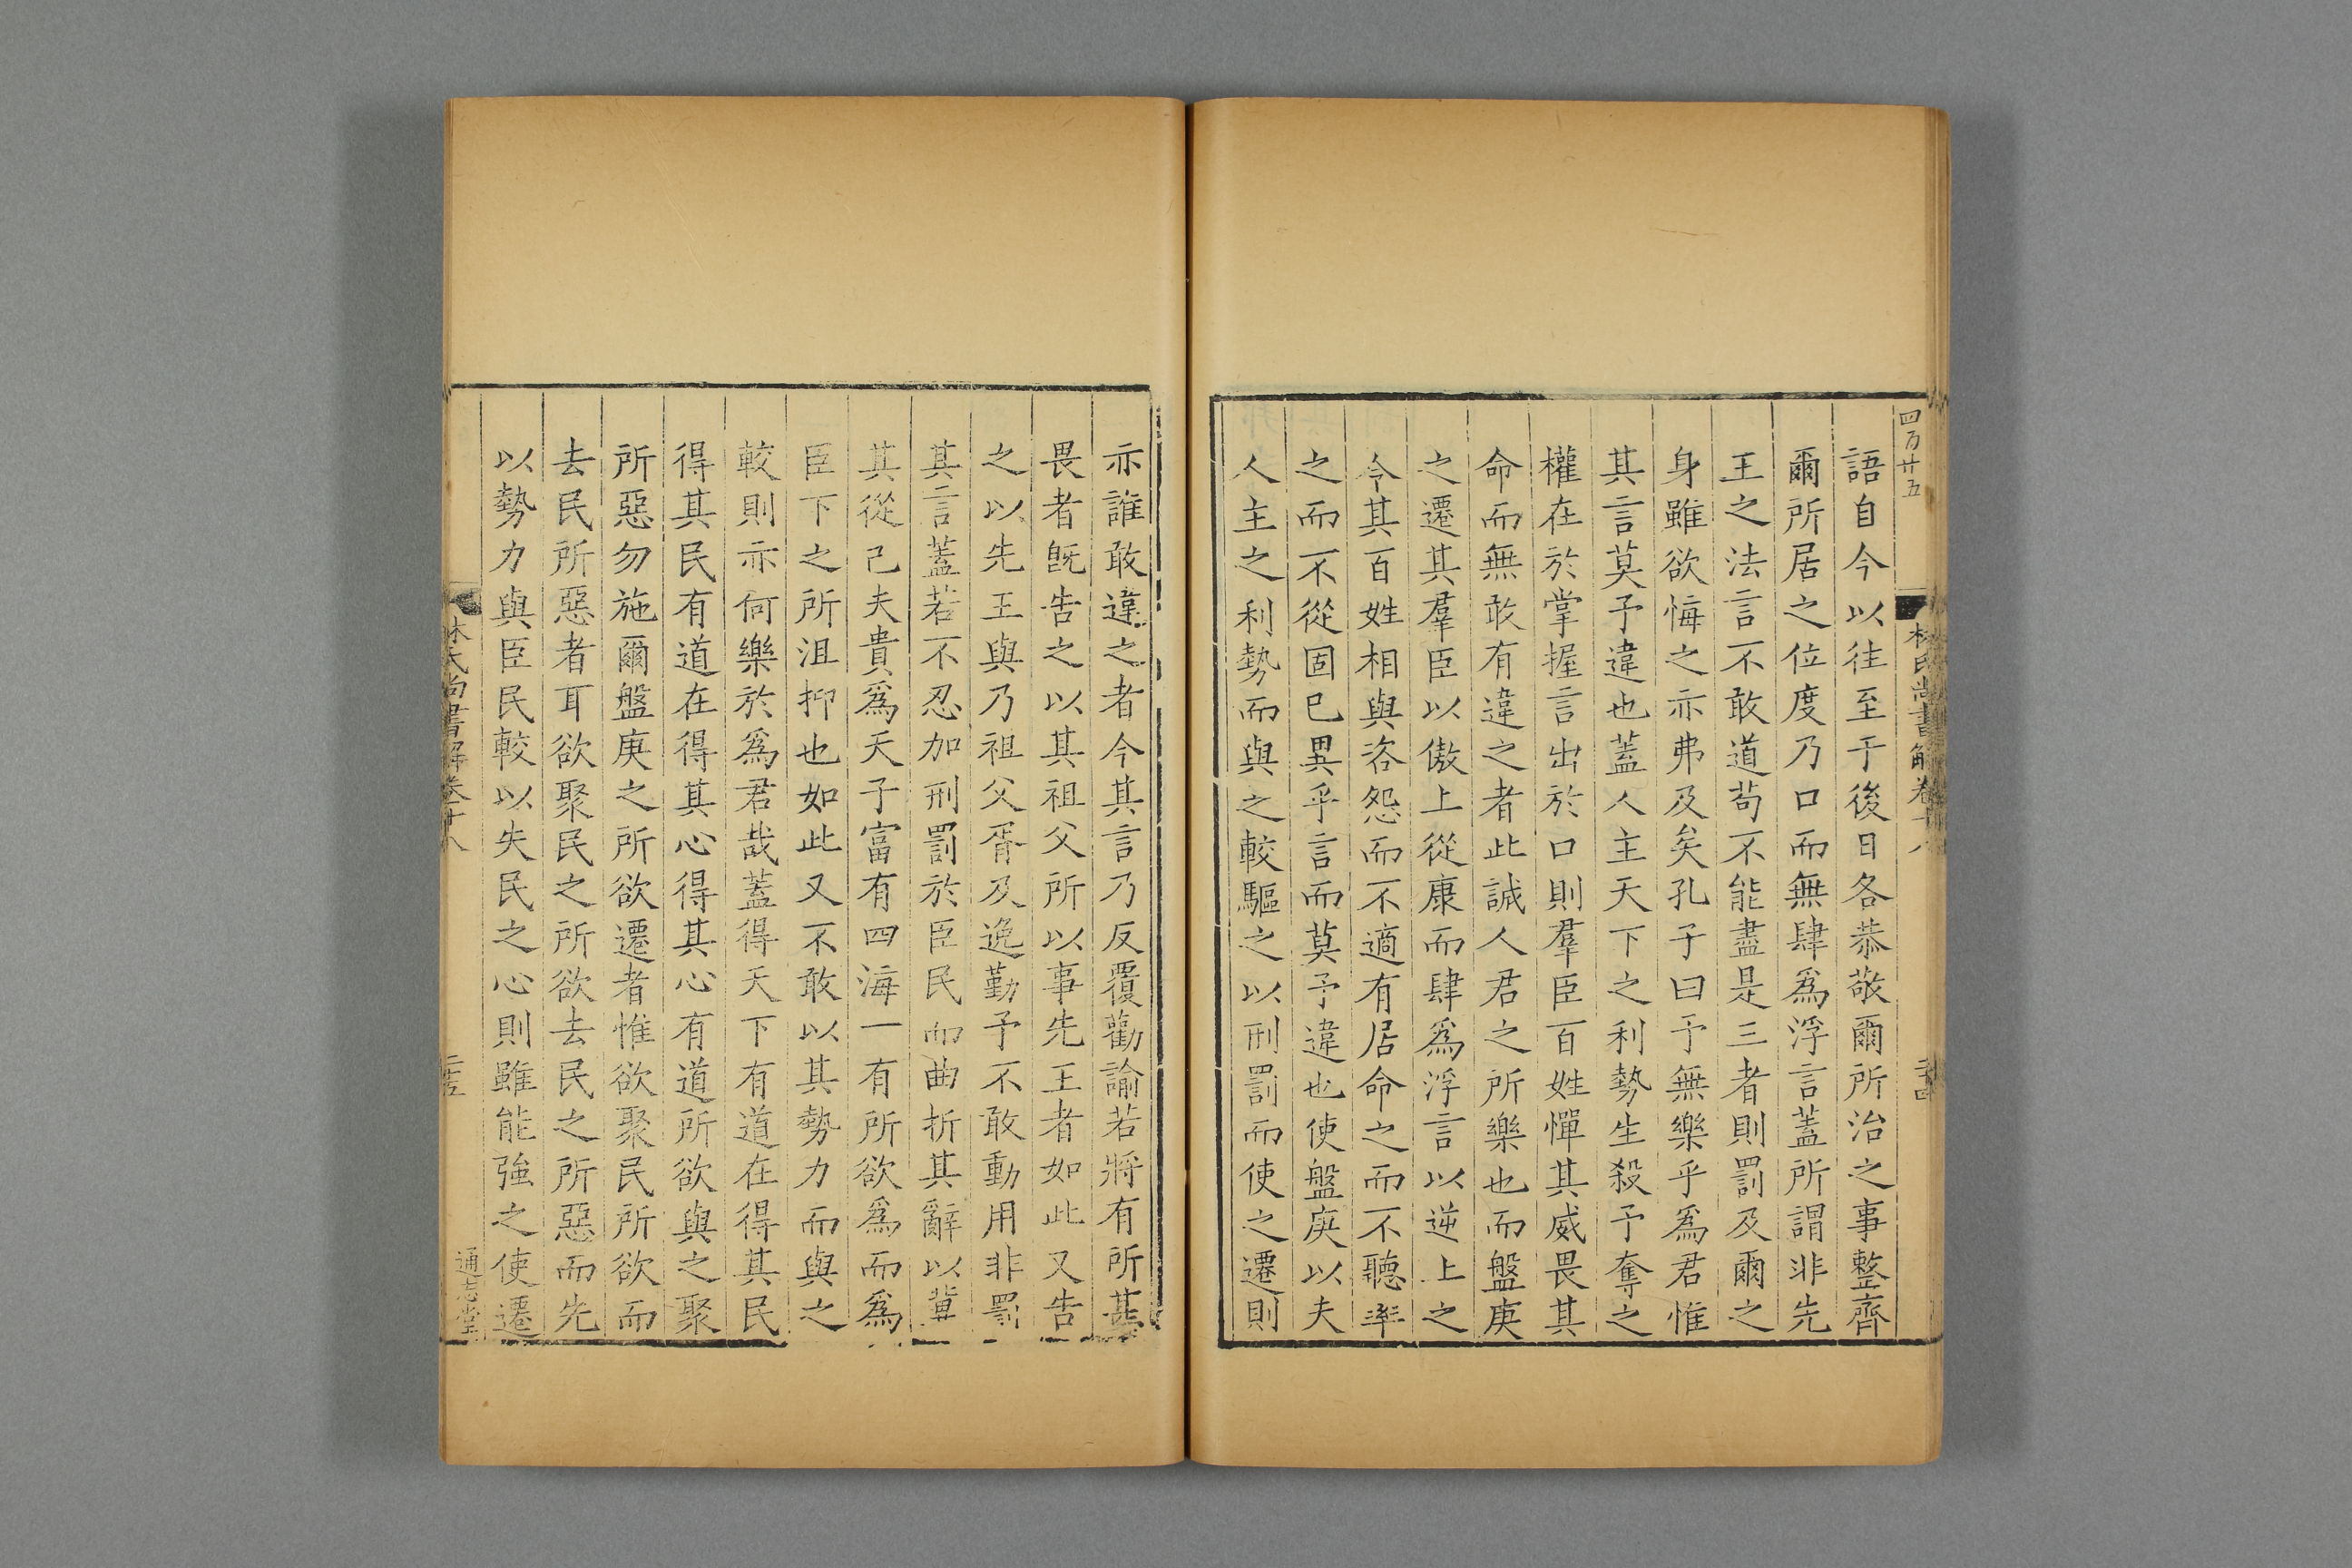 四万廿五
林氏尚書解卷十八
二十四
語自今以往至于後日各恭敬爾所治之事整齊
爾所居之位度乃口而無肆爲浮言蓋所謂非先
王之法言不敢道苟不能盡是三者則罰及爾之
身雖欲悔之亦弗及矣孔子曰予無樂乎爲君惟
其言莫予違也蓋人主天下之利勢生殺予奪之
權在於掌握言出於口則羣臣百姓憚其威畏其
命而無敢有違之者此誠人君之所樂也而盤庚
之遷其羣臣以傲上從康而肆爲浮言以逆上之
令其百姓相與咨怨而不適有居命之而不聽率
之而不從固已異乎言而莫予違也使盤庚以夫
人主之利勢而與之較驅之以刑罰而使之遷則
亦誰敢違之者今其言乃反覆勸諭若將有所甚
畏者旣告之以其祖父所以事先王者如此又告
之以先王與乃祖父胥及逸勤予不敢動用非罰
其言蓋若不忍加刑罰於臣民而曲折其辭以冀
其從己夫貴爲天子富有四海一有所欲爲而爲
臣下之所沮抑也如此又不敢以其勢力而與之
較則亦何樂於爲君哉蓋得天下有道在得其民
得其民有道在得其心得其心有道所欲與之聚
所惡勿施爾盤庚之所欲遷者惟欲聚民所欲而
去民所惡者耳欲聚民之所欲去民之所惡而先
以勢力與臣民較以失民之心則雖能強之使遷
林氏尚書解卷十八
二十五
通志堂